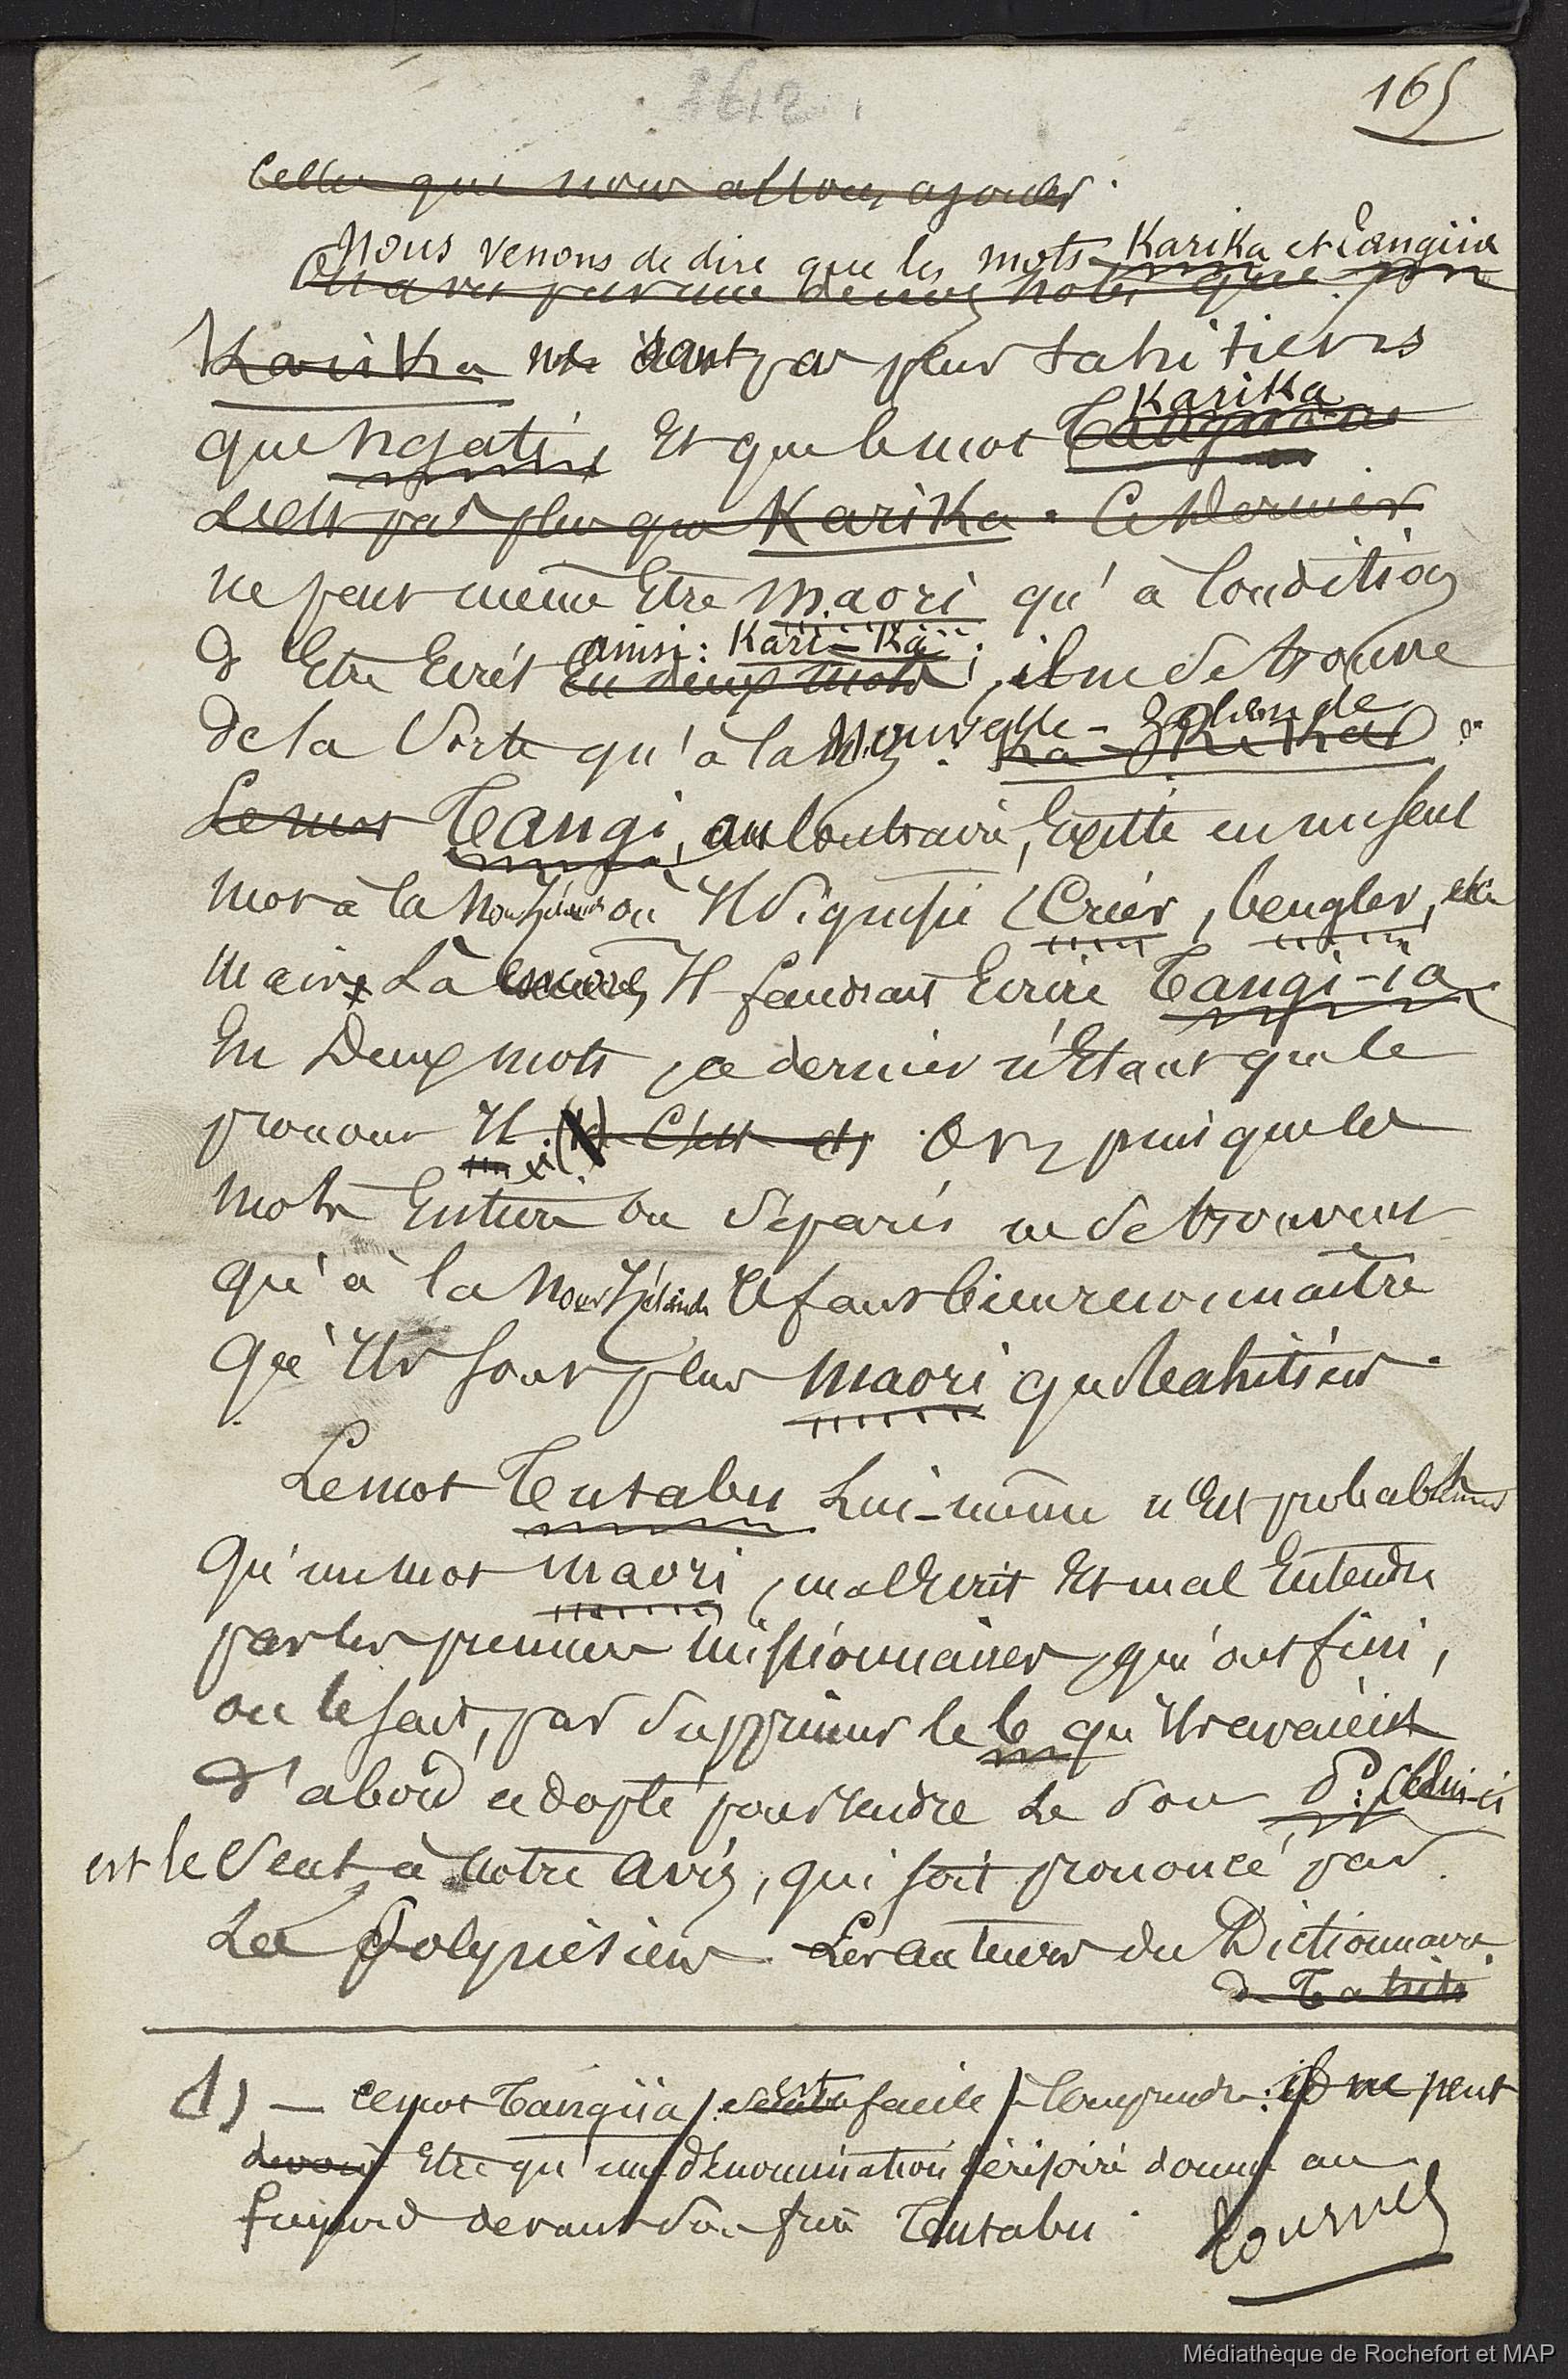 3612.
165
Celles que nous allons ajouter.
Nous venons de dire que les mots Karika et Tangiia
On a vu par une de nos notes que
Karika ne sont pas plus tahitiens
que ngati, Et que le mot Tangiia Karika
l'est pas plus que Karika. Ce dernier
ne peut même Etre maori qu'à Condition
d'Etre Ecrit en deux mots ainsi: Kari-Ka ; il ne se trouve
de la Sorte qu'à la Nouvelle-Zélande.
Le mot Tangi, au Contraire, Existe en un seul
mot à la Nouv. Zélande où Il Signifie Crier, beugler, etc
mais Là encore, Il faudrait Ecrire Tangi-ia
En Deux mots, ce dernier n'Etant que le
pronom Il. (1) C'est Or, puisque les
mots Entiers ou Séparés ne se trouvent
qu'à la Nouv Zélande Il faut bien reconnaître
qu'Ils sont plus maori que tahitiens.
Le mot Tutabu Lui-même n'Est probablement
Qu'un mot maori, mal Ecrit Et mal Entendu
par les premiers missionnaires, qui ont fini,
on le sait, par Supprimer le b qu'Ils avaient
d'abord adopté pour rendre Le Son P: Celui-ci
est le Seul, à notre avis, qui soit prononcé par
Les Polynésiens. Les auteurs du Dictionnaire
de Tahiti
(1) — Ce mot Tangiia, est facile à Comprendre: il ne peut
devait Etre qu'une dénomination dérisoire donnée au
fuyard devant Son frère Tutabu.
tournez
Médiathèque de Rochefort et MAP